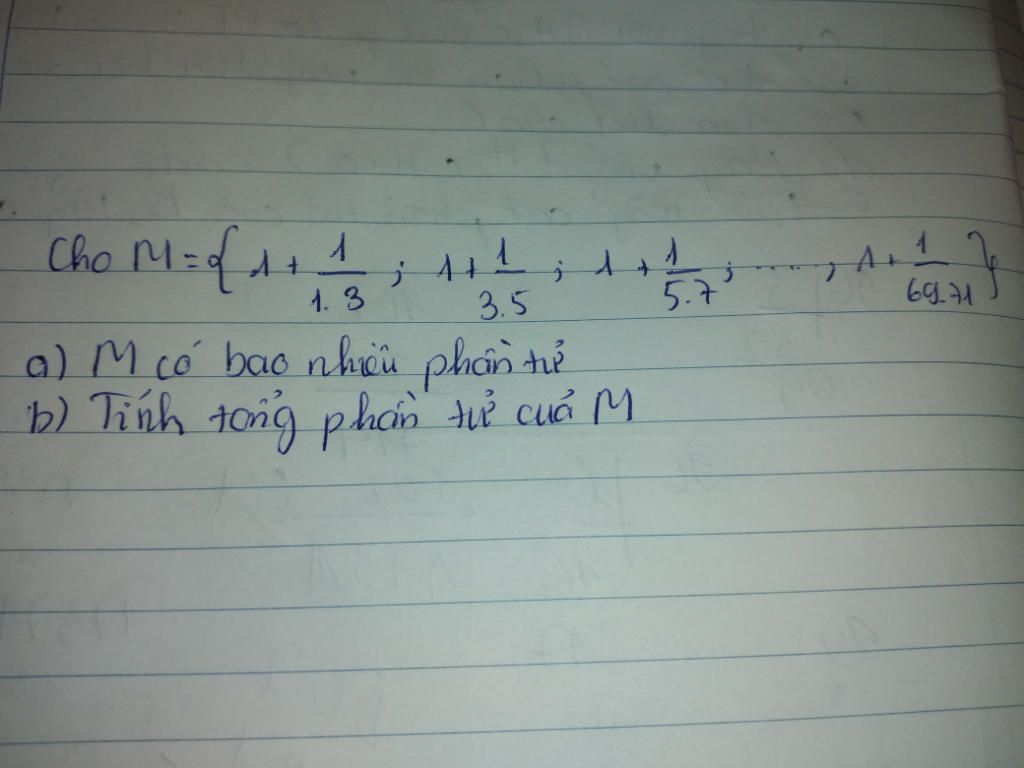 Cho M = { 1 + \frac{1}{1.3} ; 1 + \frac{1}{3.5} ; 1 + \frac{1}{5.7} ; ....., 1 + \frac{1}{69.71} }
a) M có bao nhiêu phần tử
b) Tính tổng phần tử của M